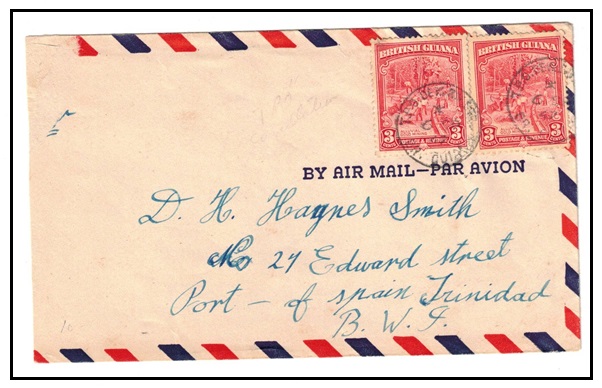 BRITISH GUIANA BRITISH GUIANA
3 CENTS POSTAGE & REVENUE 3 CENTS 3 CENTS POSTAGE & REVENUE 3 CENTS
BY AIR MAIL—PAR AVION
D. H. Haynes Smith
No 27 Edward street
Port - of spain Trinidad
B. W. I.
10